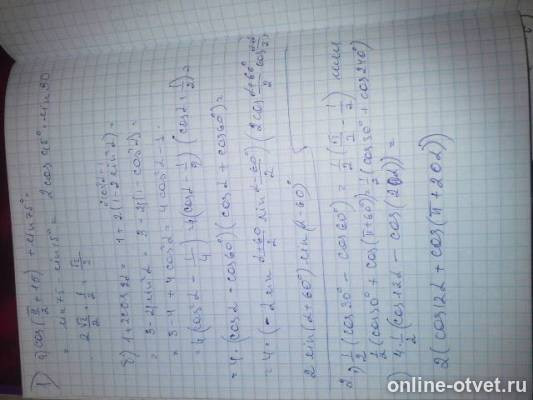 1) a) cos(π/2 + 10°) + sin 75° =
= sin 75 sin 15° = 2 cos 45° · sin 30
2 √2/2 · 1/2 = √2/2
б) 1 + 2 cos 2α = 1 + 2(1 - 2 sin²α) =
= 3 - 4 sin²α = 3 - 4(1 - cos²α) =
= 3 - 4 + 4 cos²α = 4 cos²α - 1 =
= 4(cos²α - 1/4) = 4(cos α - 1/2)(cos α + 1/2) =
= 4 · (cos α - cos 60°)(cos α + cos 60°) =
= 4 · (-2 sin (α+60°)/2 sin (α-60°)/2)(2 cos (α+60°)/2 cos
2 sin(α + 60°) · sin(α - 60°)
2) 1/2 (cos 30° - cos 60°) = 1/2 (√3/2 - 1/2) или
1/2 (cos 30° + cos(π + 60°)) = 1/2 (cos 30° + cos 240°)
4 · 1/2 (cos 12α - cos(20α)) =
2(cos 12α + cos(π + 20α))
online-otvet.ru